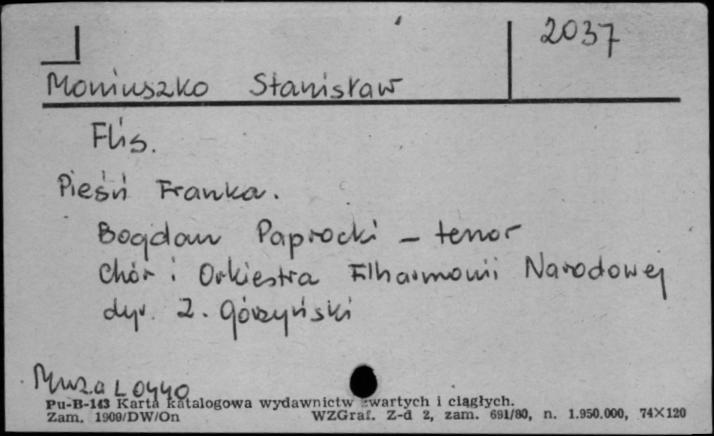 2037
Moniuszko Stanisław
Flis.
Pieśń Franka.
Bogdan Paprocki - tenor
Chór i Orkiestra Filharmonii Narodowej
dyr. Z. Górzyński
Muza L 0440
Pu-B-143 Karta katalogowa wydawnictw zwartych i ciągłych.
Zam. 1909/DW/On WZGraf. Z-d 2, zam. 691/80, n. 1.950.000, 74×120